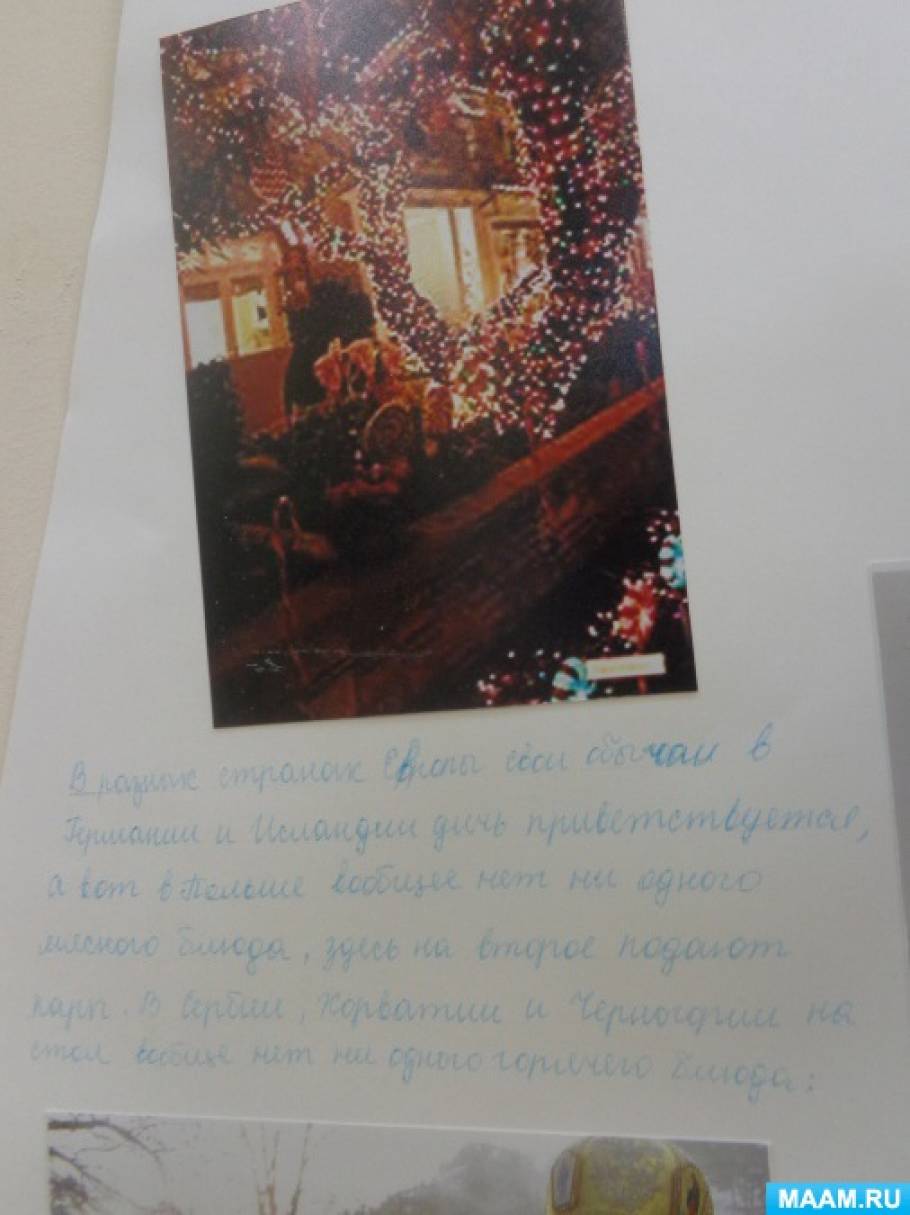 В разных странах Европы свои обычаи в
Германии и Исландии дичь приветствуется,
а вот в Польше вообщее нет ни одного
мясного блюда, здесь на второе подают
карп. В Сербии, Хорватии и Черногории на
стол вообще нет ни одного горячего блюда:
MAAM.RU